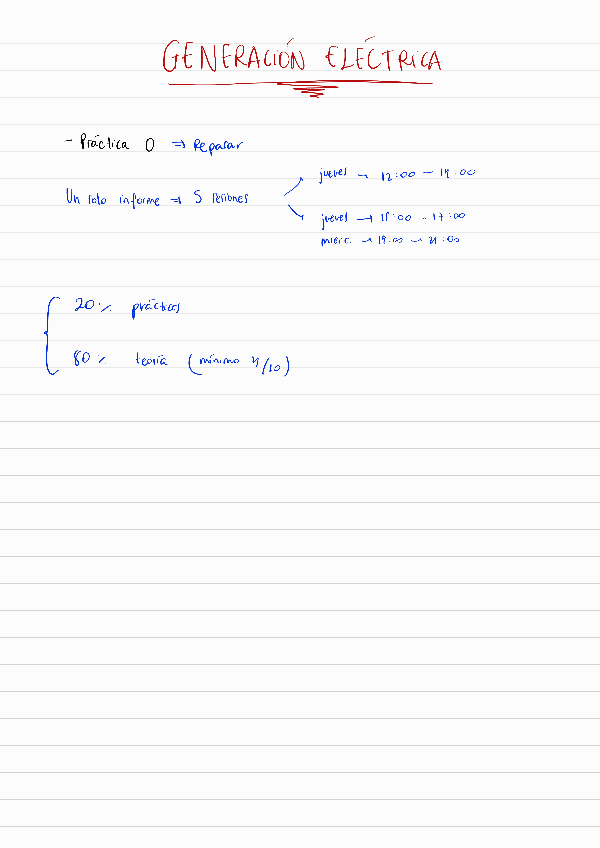 GENERACIÓN ELÉCTRICA
- Práctica 0 ⇒ Repasar
Un solo informe ⇒ 5 sesiones
jueves → 12:00 - 14:00
jueves → 15:00 - 17:00
mierc. → 19:00 → 21:00
20% prácticas
80% teoría (mínimo 4/10)